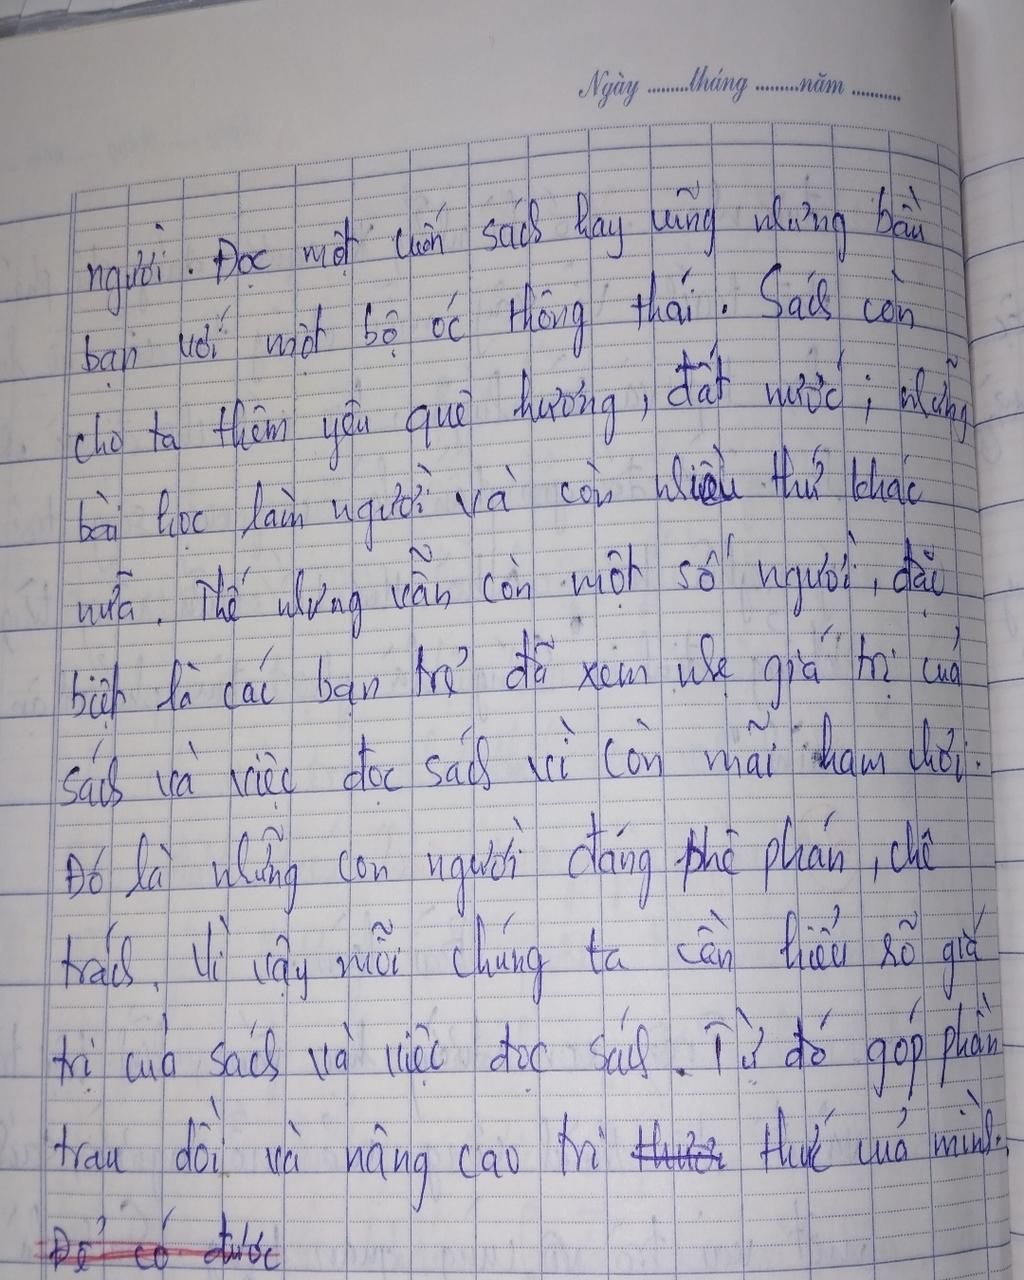 Ngày ........tháng ........năm .........
người. Đọc một cuốn sách hay cũng nhưng bầu
bạn với một bộ óc thông thái. Sách còn
cho ta thêm yêu quê hương, đất nước; những
bài học làm người và còn nhiều thứ khác
nữa. Thế nhưng vẫn còn một số người, đặc
biệt là các bạn trẻ đã xem nhẹ giá trị của
sách và việc đọc sách vì còn mãi ham chơi.
Đó là những con người đáng phê phán, chê
trách. Vì vậy mỗi chúng ta cần hiểu rõ giá
trị của sách và việc đọc sách. Từ đó góp phần
trau dồi và nâng cao tri thức của mình.
Để có được